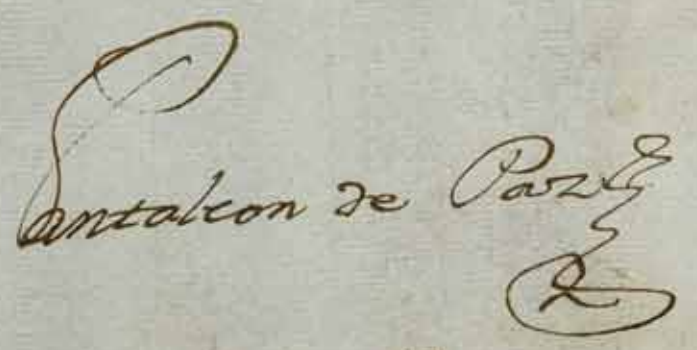 Pantaleon de Paz